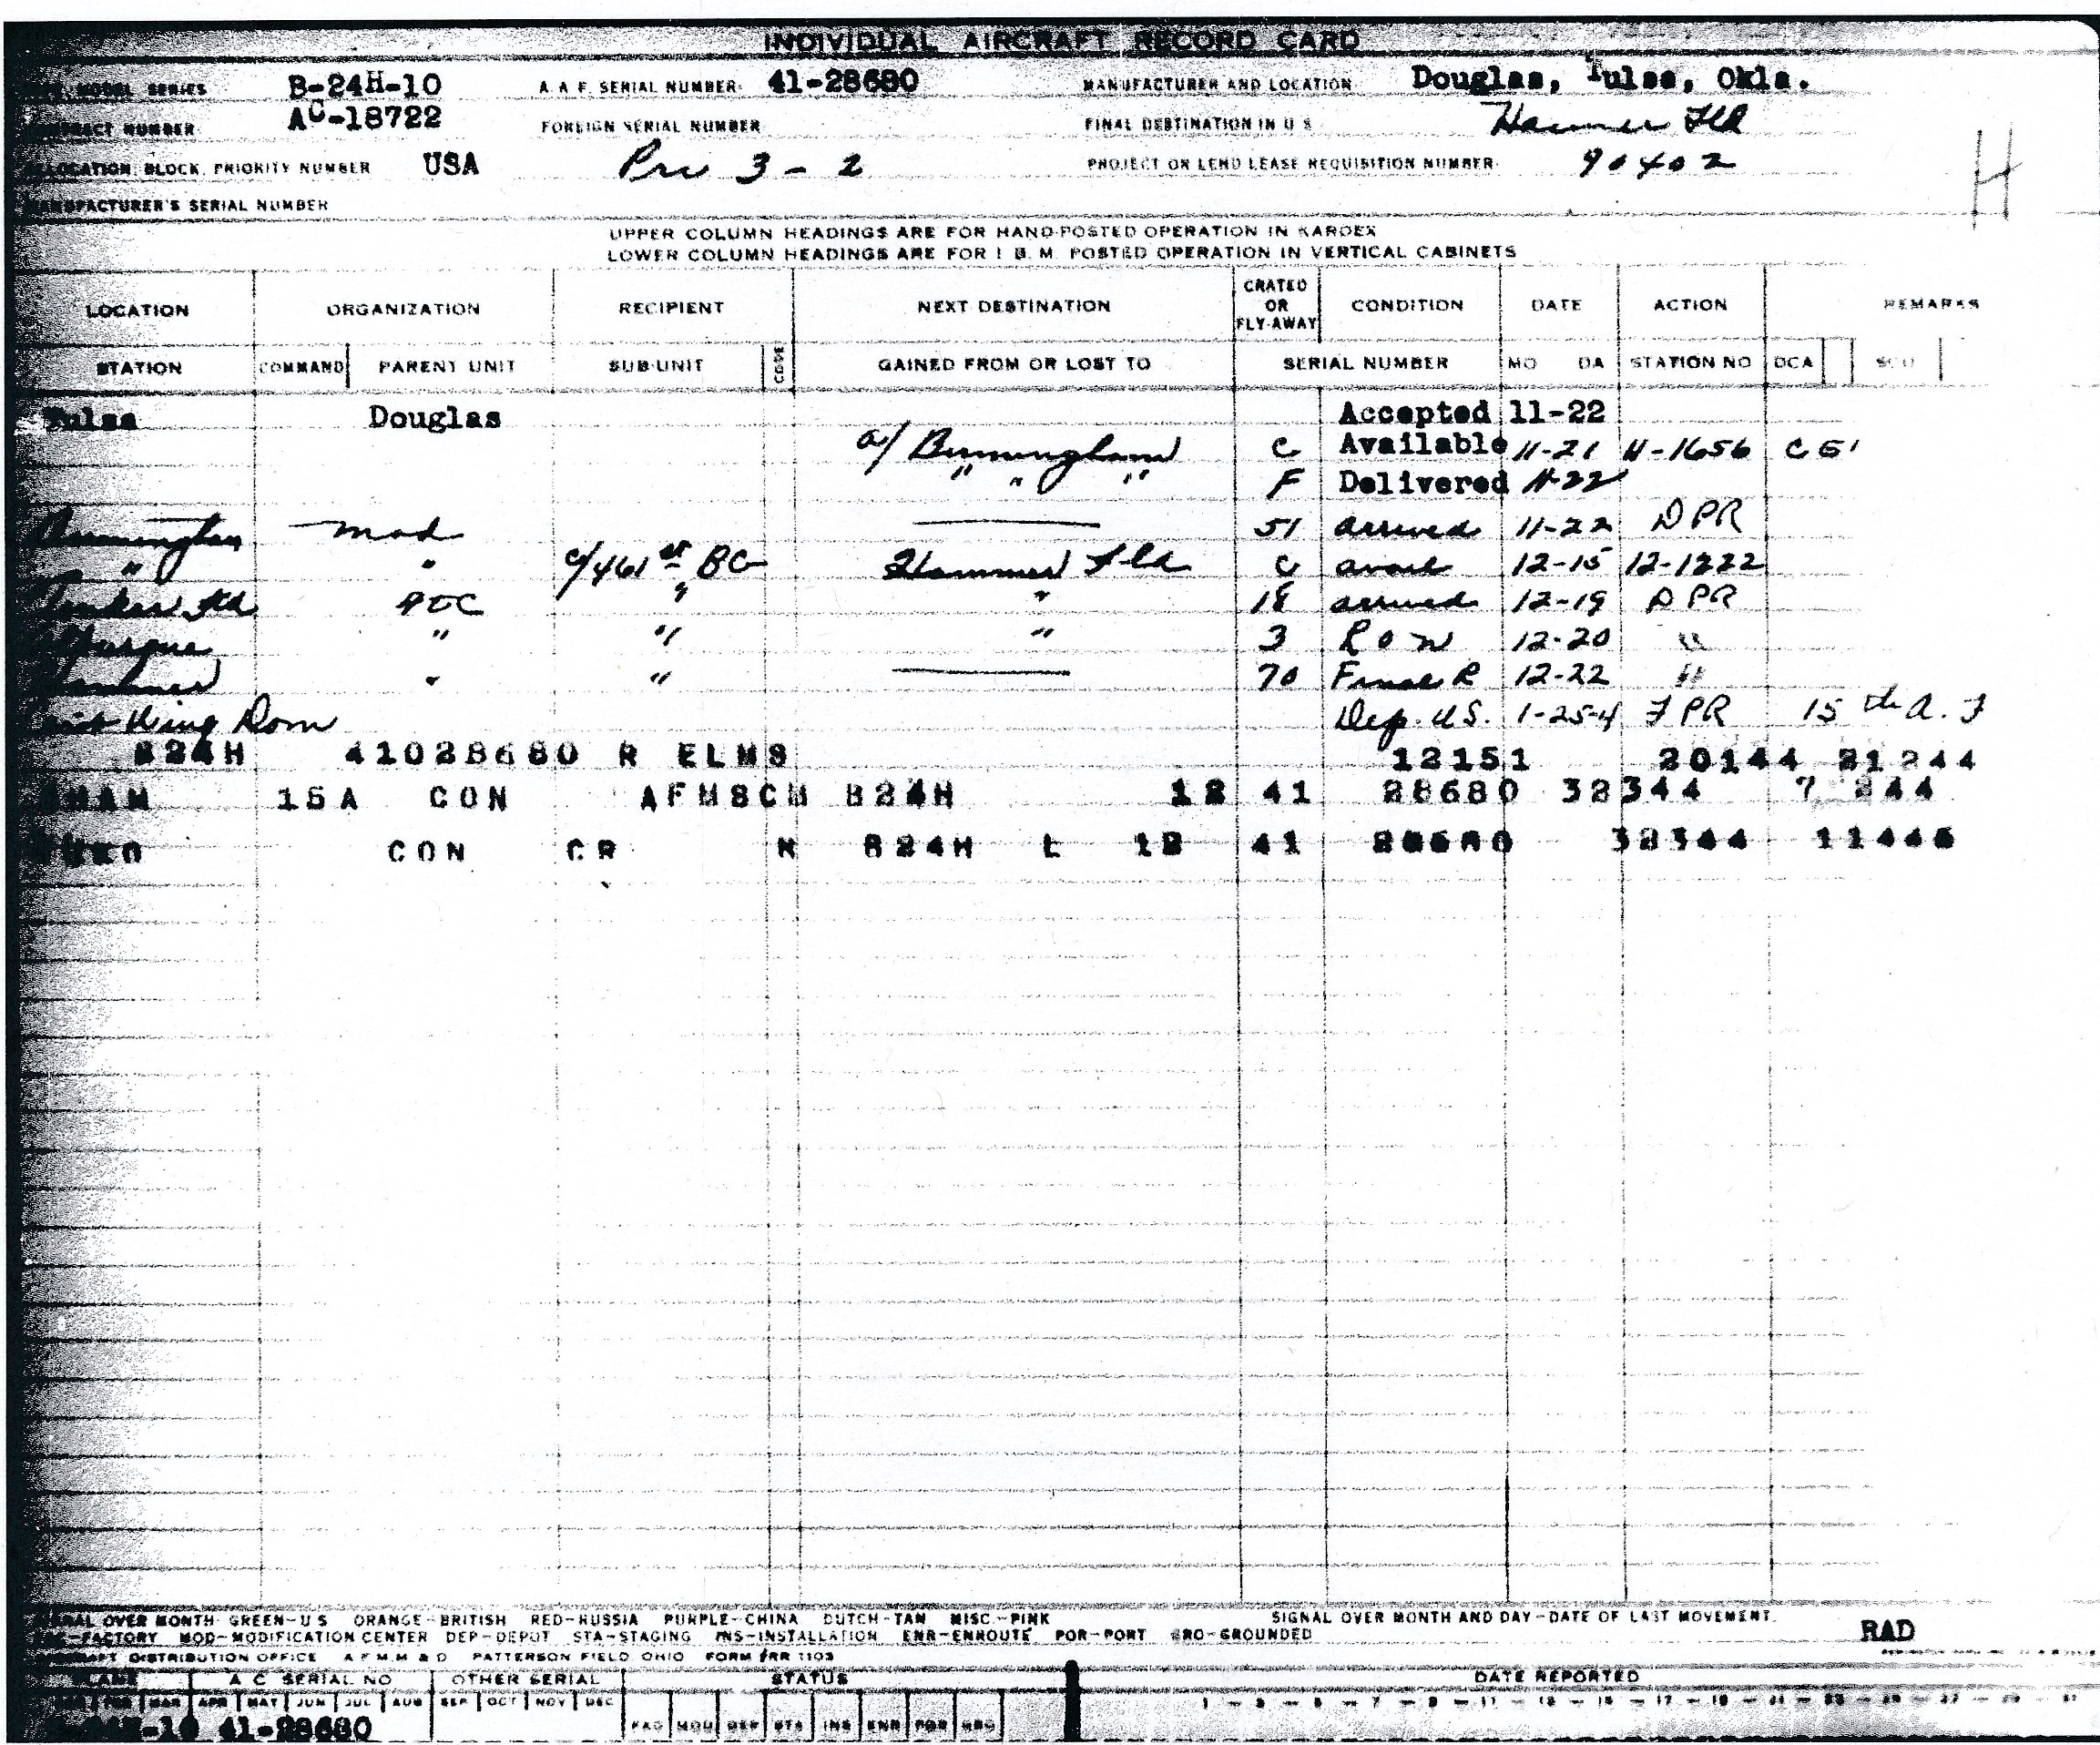 INDIVIDUAL AIRCRAFT RECORD CARD
MODEL SERIES B-24H-10 A.A.F. SERIAL NUMBER 41-28680 MANUFACTURER AND LOCATION Douglas, Tulsa, Okla.
NUMBER AC-18722 FOREIGN SERIAL NUMBER FINAL DESTINATION IN U S Hammer Fld
BLOCK, PRIORITY NUMBER USA 3 - 2 PROJECT OR LEND LEASE REQUISITION NUMBER 90402
H
MANUFACTURER'S SERIAL NUMBER
UPPER COLUMN HEADINGS ARE FOR HAND-POSTED OPERATION IN KARDEX
LOWER COLUMN HEADINGS ARE FOR I B. M. POSTED OPERATION IN VERTICAL CABINETS
LOCATION ORGANIZATION RECIPIENT NEXT DESTINATION CRATED OR FLY-AWAY CONDITION DATE ACTION REMARKS
STATION COMMAND PARENT UNIT SUB-UNIT CODE GAINED FROM OR LOST TO SERIAL NUMBER MO DA STATION NO DCA
Tulsa Douglas Accepted 11-22
a/ Birmingham C Available 11-21 11-1656
" " " F Delivered 11-22
Birmingham Mod 51 arrived 11-22 DPR
" " c/461st BG Hammer Fld C avail 12-15 12-1222
" " 18 arrived 12-19 DPR
" " " 3 R O N 12-20 "
" " 70 Final R 12-22 "
King Dom Dep. U.S. 1-25-4 FPR 15th A. F
B24H 41028680 R ELMS 12151 20144 21244
15A CON AFMSCM B24H 12 41 28680 32344 7 244
CON CR N B24H L 12 41 28680 32344 11446
OVER MONTH GREEN-U S ORANGE-BRITISH RED-RUSSIA PURPLE-CHINA DUTCH-TAN MISC.-PINK SIGNAL OVER MONTH AND DAY-DATE OF LAST MOVEMENT.
FACTORY MOD-MODIFICATION CENTER DEP-DEPOT STA-STAGING INS-INSTALLATION ENR-ENROUTE POR-PORT GRO-GROUNDED RAD
DISTRIBUTION OFFICE A F M.M & D PATTERSON FIELD, OHIO FORM ARR 1103
NAME A C SERIAL NO OTHER SERIAL STATUS DATE REPORTED
MAR APR MAY JUN JUL AUG SEP OCT NOV DEC
41-28680 FAC MOD DEP STA INS ENR POR GRO